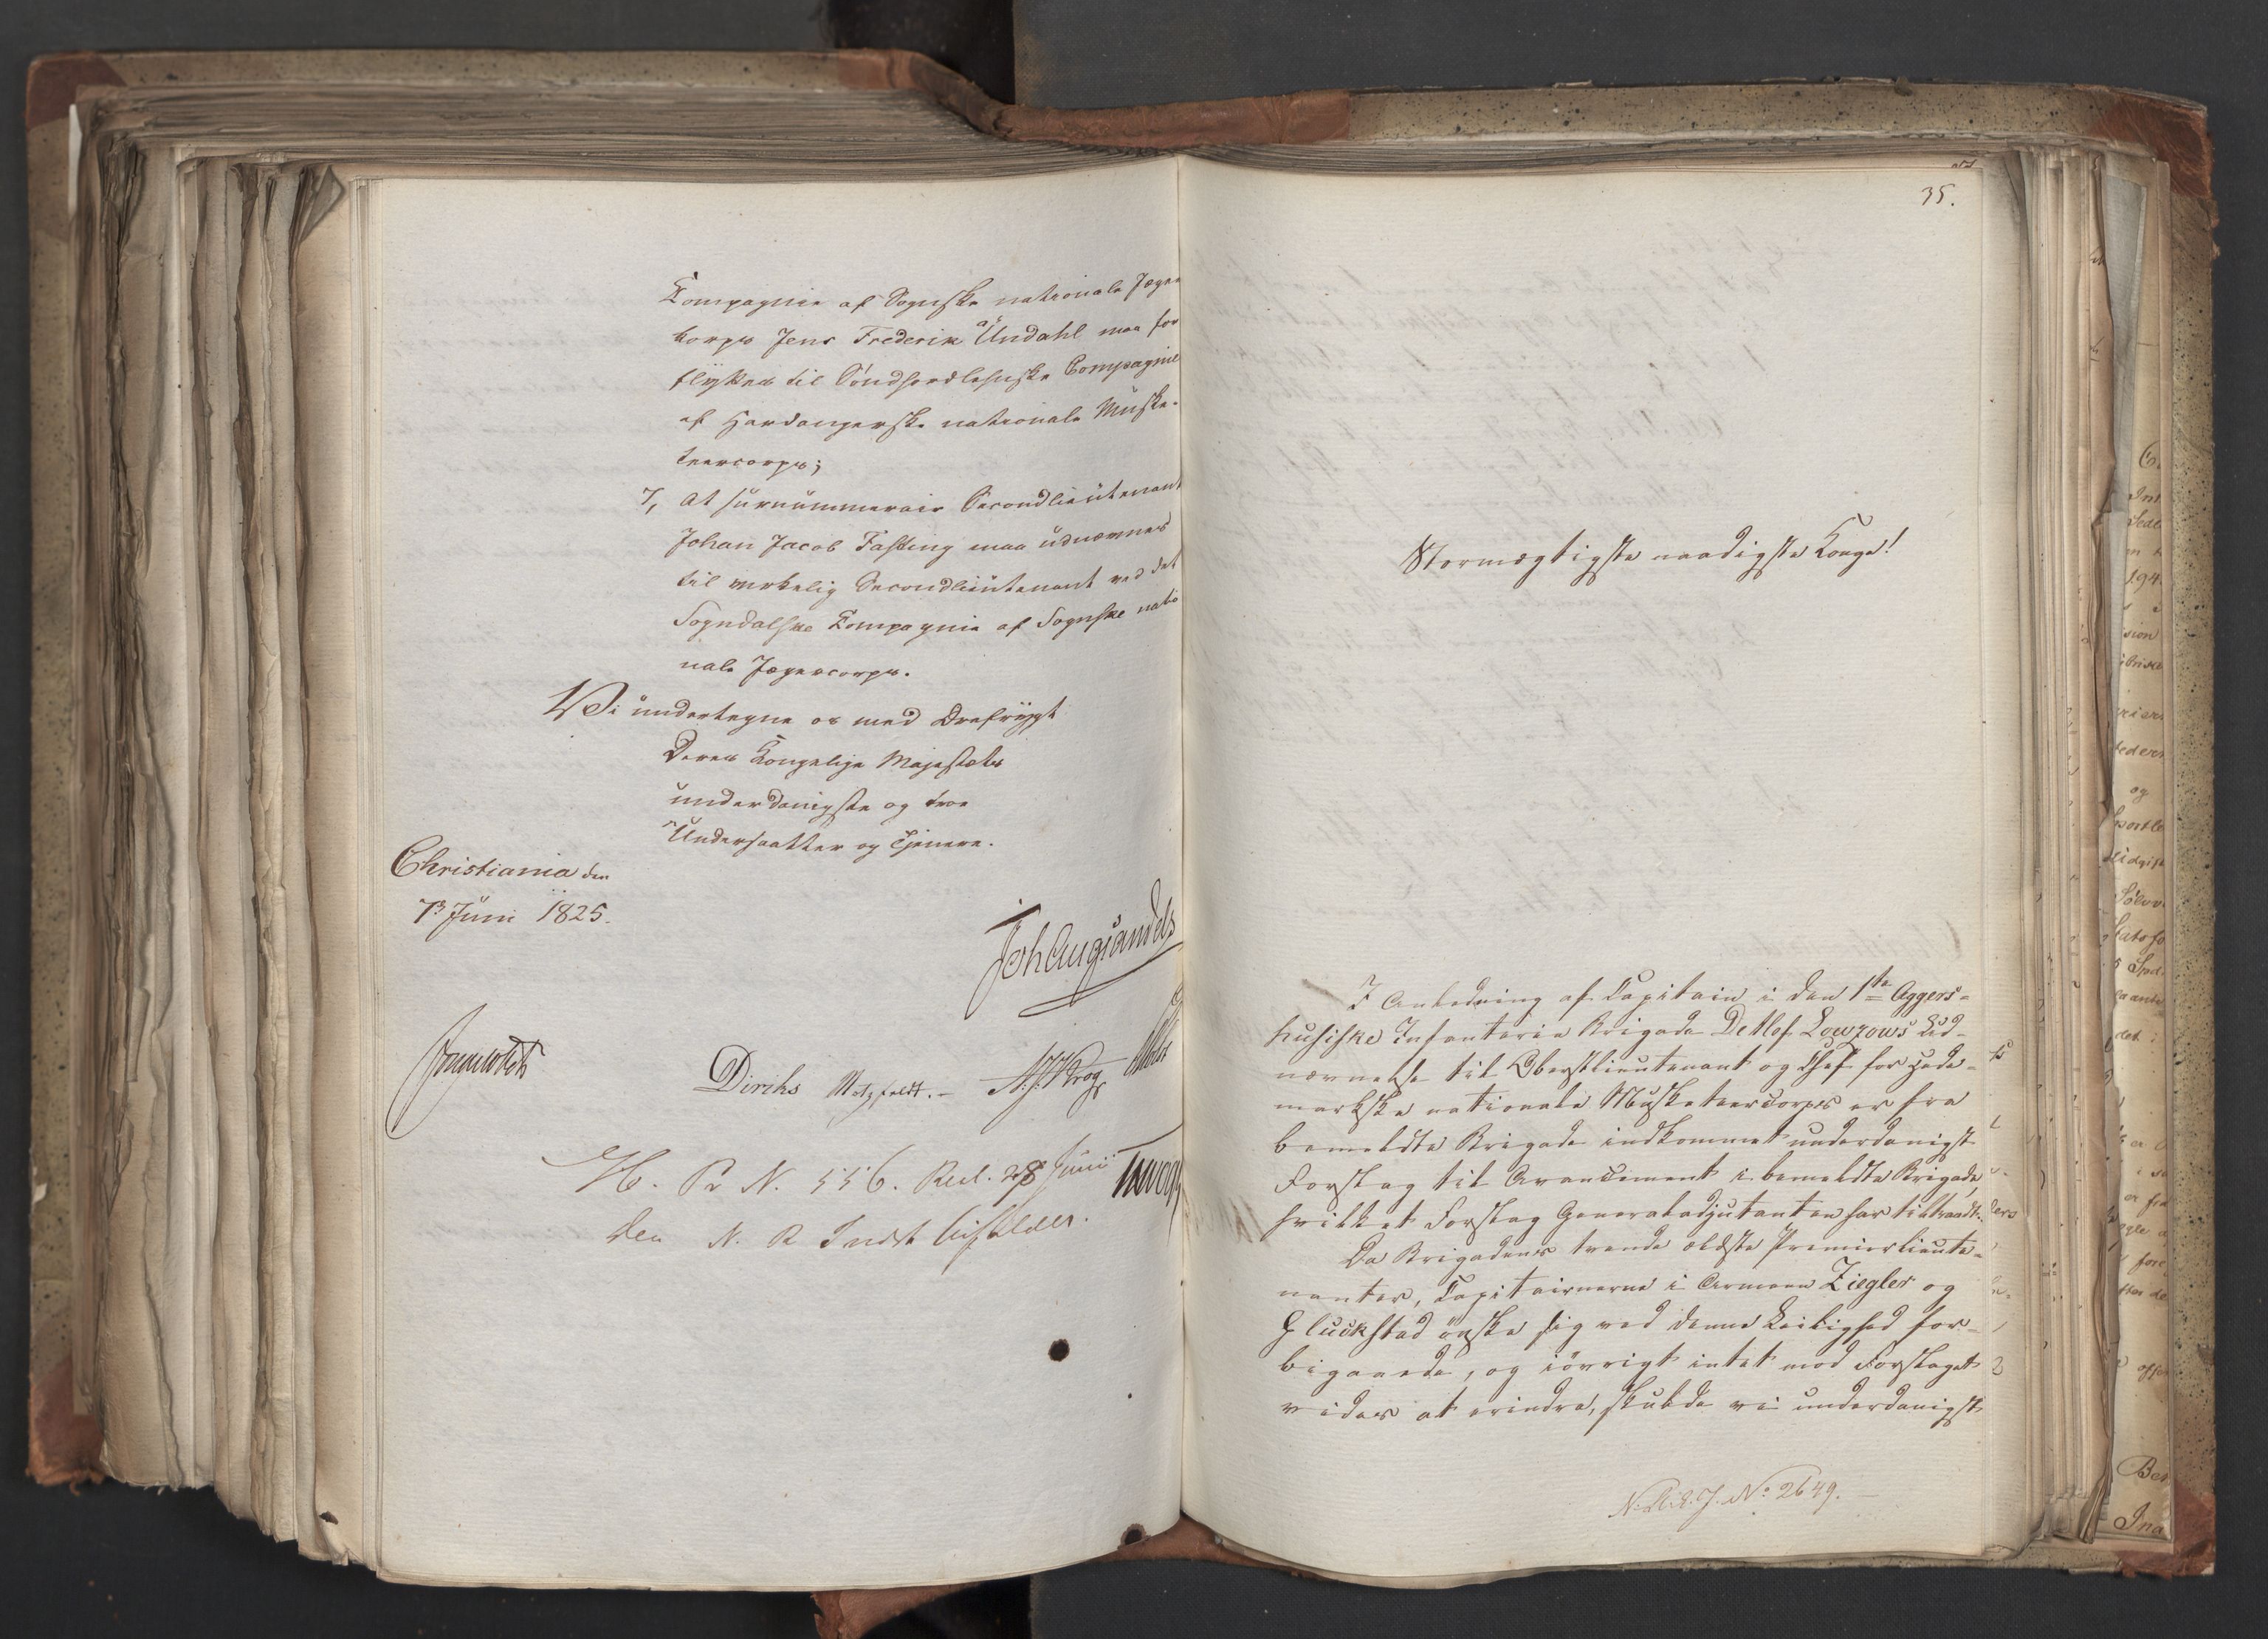 Compagnie af Sognske nationale Jæger
korps Jens Frederik Undahl maa for
flyttes til Söndhordlehnske Compagnie
af Hardangerske nationale Muske-
teercorps;
7, at surnummerair Secondlieutenant
Johan Jacob Fasting maa udnævnes
til virkelig Secondlieutenant ved det
Sogndalske Compagnie af Sognske natio
nale Jægercorps.
Vi undertegne os med Ærefrygt
Deres Kongelige Majestæts
underdanigste og troe
Undersaatter og Tjenere.
Christiania den
7de Juni 1825.
Joh Aug Sandels
Diriks Motzfeldt. N. J. Krog
H. Pr N. 556. Resl. 28 Junii
den N. R Indst bifaldes.
35.
Stormægtigste naadigste Konge!
I Anledning af Capitain i den 1ste Aggers-
husiske Infanterie Brigade Detlof Lowzows Ud-
nævnelse til Oberstlieutenant og Chef for Hede-
markske nationale Musketeercorps er fra
bemeldte Brigade indkommet underdanigst
Forslag til Avancement i bemeldte Brigade,
hvilket Forslag Generaladjutanten har tiltraadt.
Da Brigadens tvende ældste Premierlieute-
nanter, Capitainerne i Armeen Ziegler og
Gluckstad önske sig ved denne Leilighed for-
bigaaede, og iövrigt intet mod Forslaget
vides at erindre, skulde vi underdanigst
No. 2649.